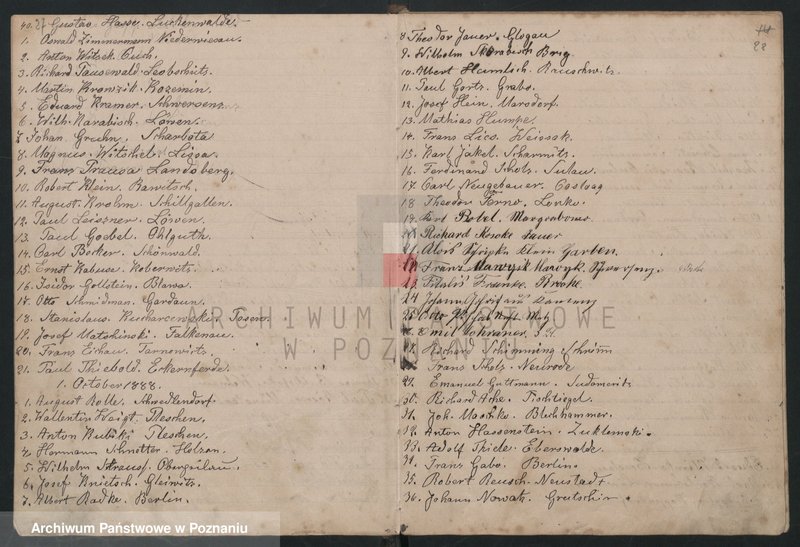 40. Gustav Hasse. Luckenwalde.
1. Oswald Zimmermann Niederwiesau.
2. Anton Witeck. Buch.
3. Richard Tausewald. Leobshits.
4. Martin Krowzik. Kozemin.
5. Eduard Kramer. Schwersens.
6. Wilh. Karabisch. Löwen.
7. Johan. Gruhn. Scharbota
8. Magnus. Witshel. Lissa.
9. Franz Tracwa. Landsberg.
10. Robert Klein. Rawitsch.
11. August. Krohn. Schillgallen.
12. Paul Leissner. Löwen.
13. Paul Goebel. Ohlguth.
14. Carl Becker. Schönwald.
15. Ernst Kabuse. Koberwits.
16. Isidor Gollstein. Blawa.
17. Otto Schmidman. Gardaun.
18. Stanislaus. Kucharcewsker. Posow.
19. Josef Matshinski. Falkenau.
20. Franz Eihau. Tarnowits.
21. Paul Thiebold. Erkernferde.
1. October 1888.
1. August Rolle. Schwedlendorf.
2. Vallentin Voigt. Pleschen.
3. Anton Kubski Pleschen.
4. Hermann Schnetter. Holzan.
5. Wilhelm Strauss. Obergulau.
6. Josef Knietsch. Gleiwits.
7. Albert Radke. Berlin.
28
8 Theodor Jauer. Glogau
9. Wilhelm Karabisch Brig
10. Albert Heimlich.
11. Paul Gorts. Grabo.
12. Josef Hein. Marsdorf.
13. Mathias Humpe.
14. Franz Lies. Weissak.
15. Karl Jäkel. Scharnits.
16. Ferdinand Scholz. Sulau.
17. Carl Neugebauer. Costvag
18 Theodor Ferno. Lenko.
19. Karl Robel. Margrabowo.
20 Richard Kroke Sauer
21. Alois Klein Garben.
22 Franz Mawyik
23. Franke. Broke
24 Johann
25 Otto
26. Emil Schreiner.
27. Richard Schönning Schrimm
Franz Scholz. Neurode
29. Emanuel Guttmann. Sudomerits
30. Richard Ache. Tischtiegel.
31. Joh. Maschko. Blechhammer.
32. Anton Hassenstein. Zuklemski.
33. Adolf Thiele. Eberswalde.
34. Franz Gabo. Berlin.
35. Robert Reusch. Neustadt
36. Johann Nowak. Grutschin.
ARCHIWUM PAŃSTWOWE
W POZNANIU
Archiwum Państwowe w Poznaniu